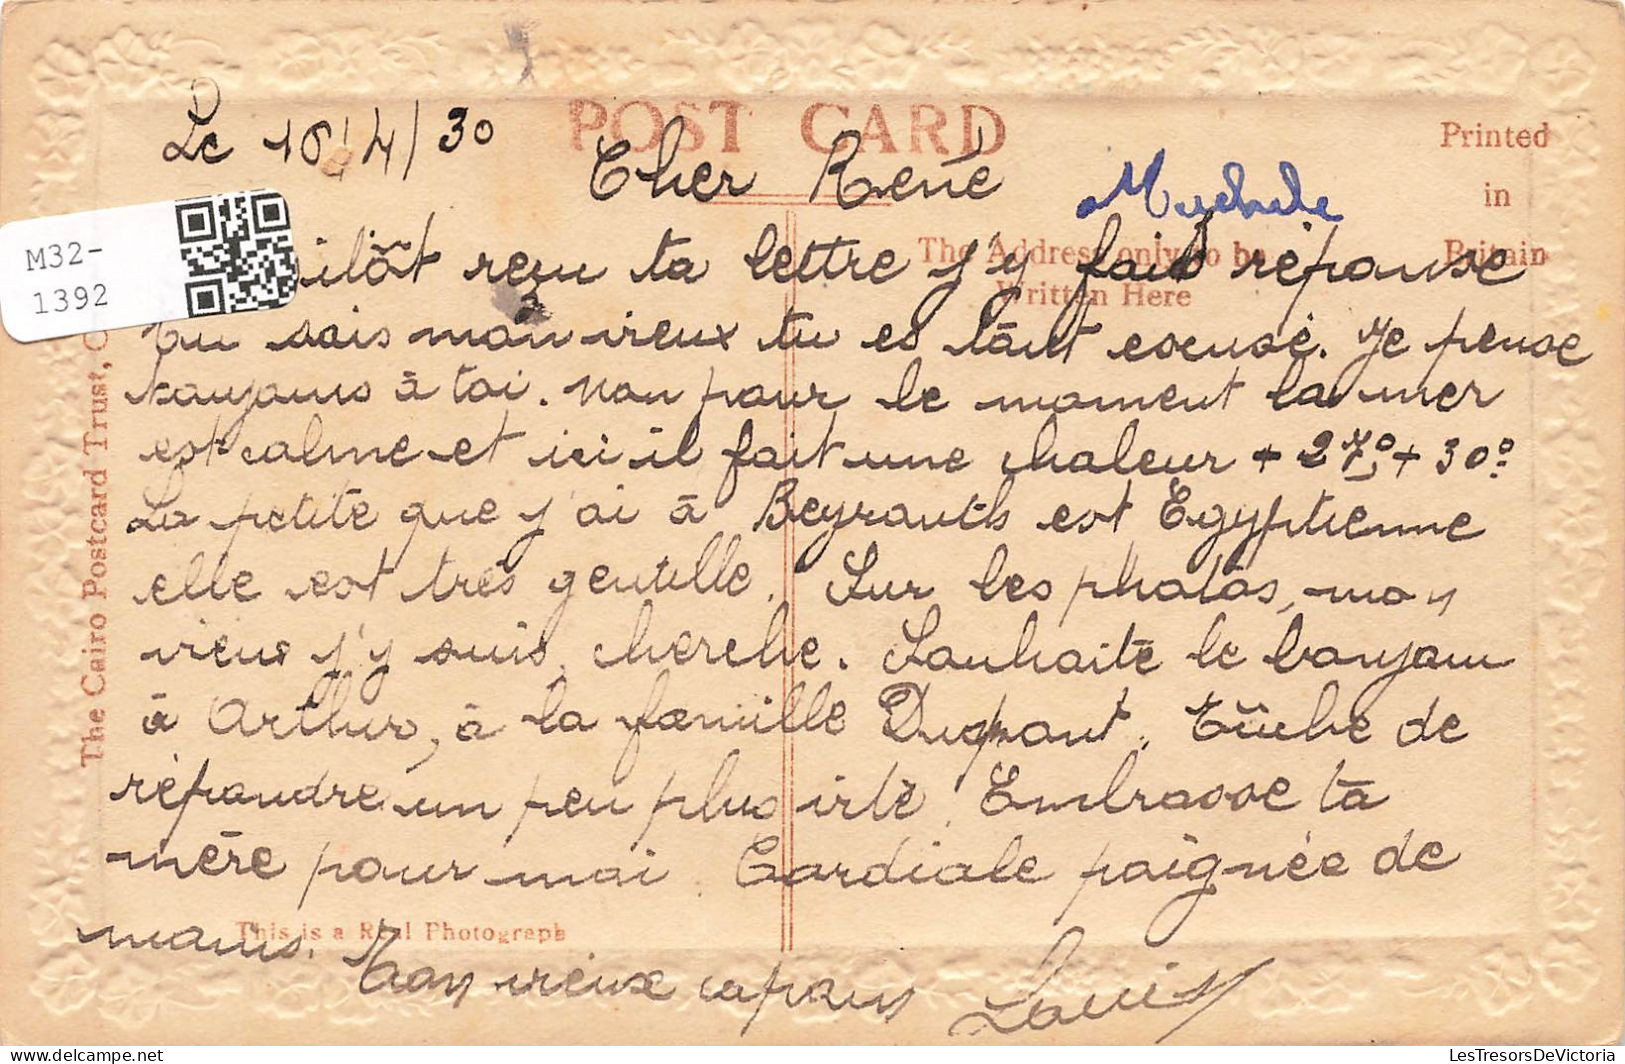 Le 16/4/30
POST CARD
Cher René
Printed
in
Britain
M32-
1392
The Address only to be
Written Here
ilôt reçu ta lettre j'y fais réponse
tu sais mon vieux tu es tout excusé. Je pense
toujours à toi. Non pour le moment la mer
est calme et ici il fait une chaleur + 27° + 30°.
La petite que j'ai à Beyrouth est Egyptienne
elle est très gentille. Sur les photos, mon
vieux j'y suis, cherche. Souhaite le bonjour
à Arthur, à la famille Dupont. Tâche de
répondre un peu plus vite. Embrasse ta
mère pour moi. Cordiale poignée de
mains. Ton vieux copain Louis
This is a Real Photograph
The Cairo Postcard Trust, C
LesTresorsDeVictoria.com
LesTresorsDeVictoria